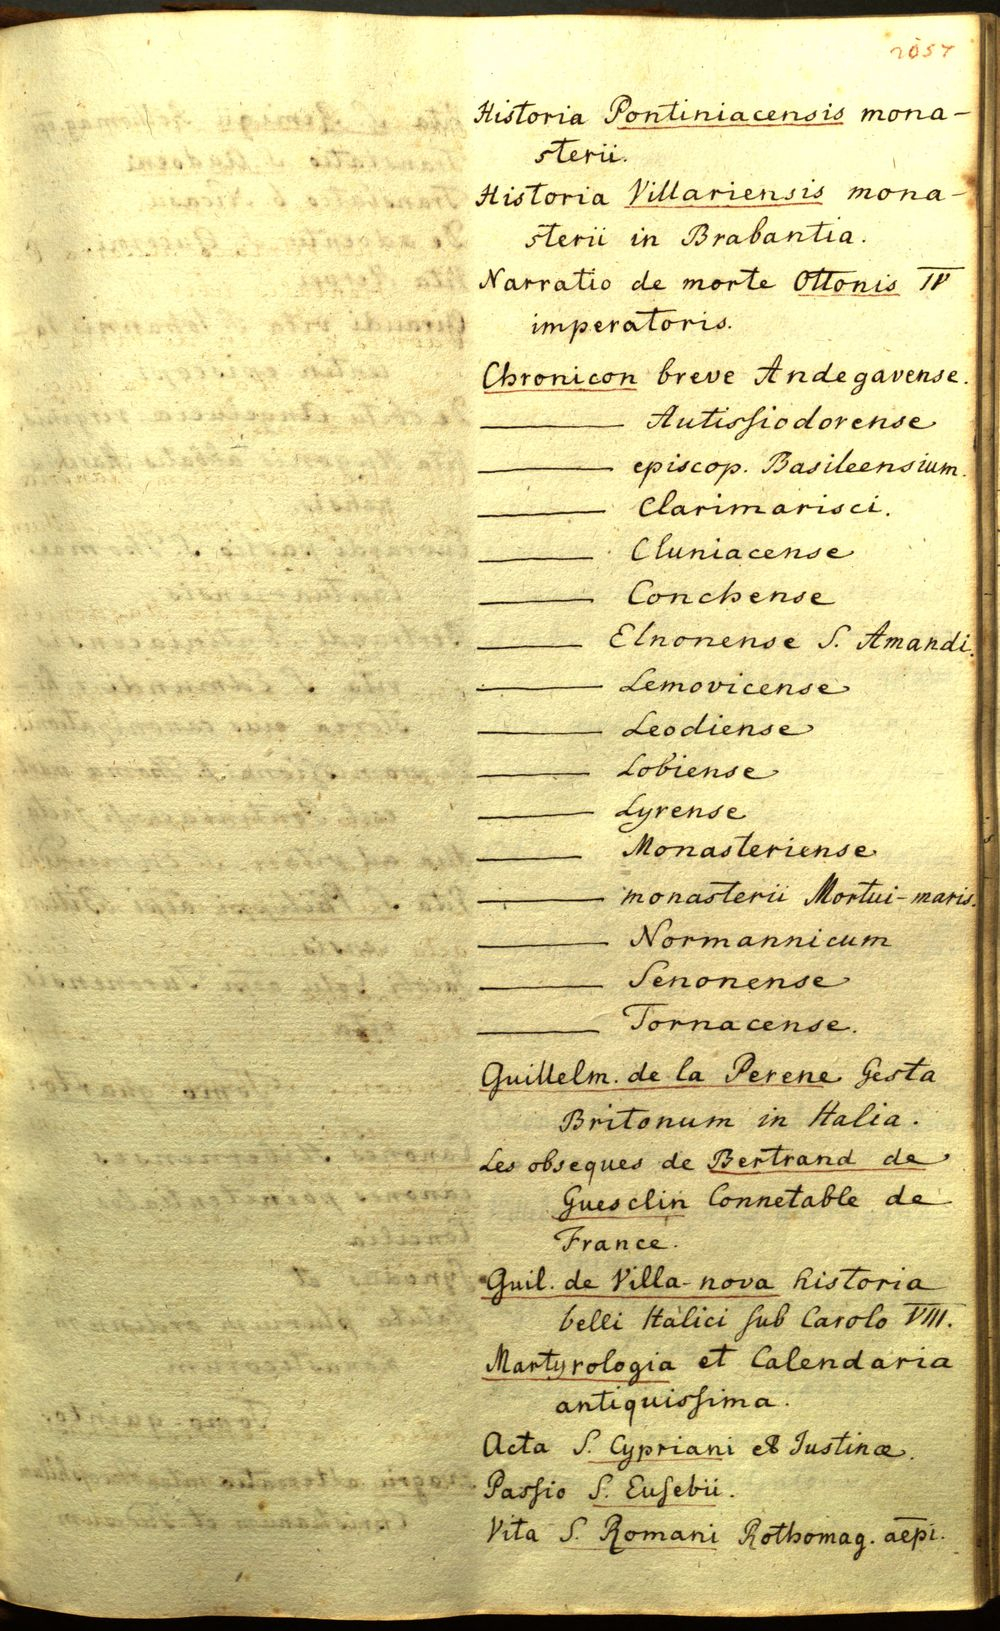 2057
Historia Pontiniacensis mona-
sterii.
Historia Villariensis mona-
sterii in Brabantia.
Narratio de morte Ottonis IV
imperatoris.
Chronicon breve Andegavense.
——— Autissiodorense
——— episcop. Basileensium.
——— Clarimarisci.
——— Cluniacense
——— Conchense
——— Elnonense S. Amandi.
——— Lemovicense
——— Leodiense
——— Lobiense
——— Lyrense
——— Monasteriense
——— monasterii Mortui-maris.
——— Normannicum
——— Senonense
——— Tornacense.
Guillelm. de la Perene Gesta
Britonum in Italia.
Les obseques de Bertrand de
Guesclin Connetable de
France.
Guil. de Villa-nova historia
belli Italici sub Carolo VIII.
Martyrologia et Calendaria
antiquissima.
Acta S. Cypriani et Justinæ.
Passio S. Eusebii.
Vita S. Romani Rothomag. aēpi.